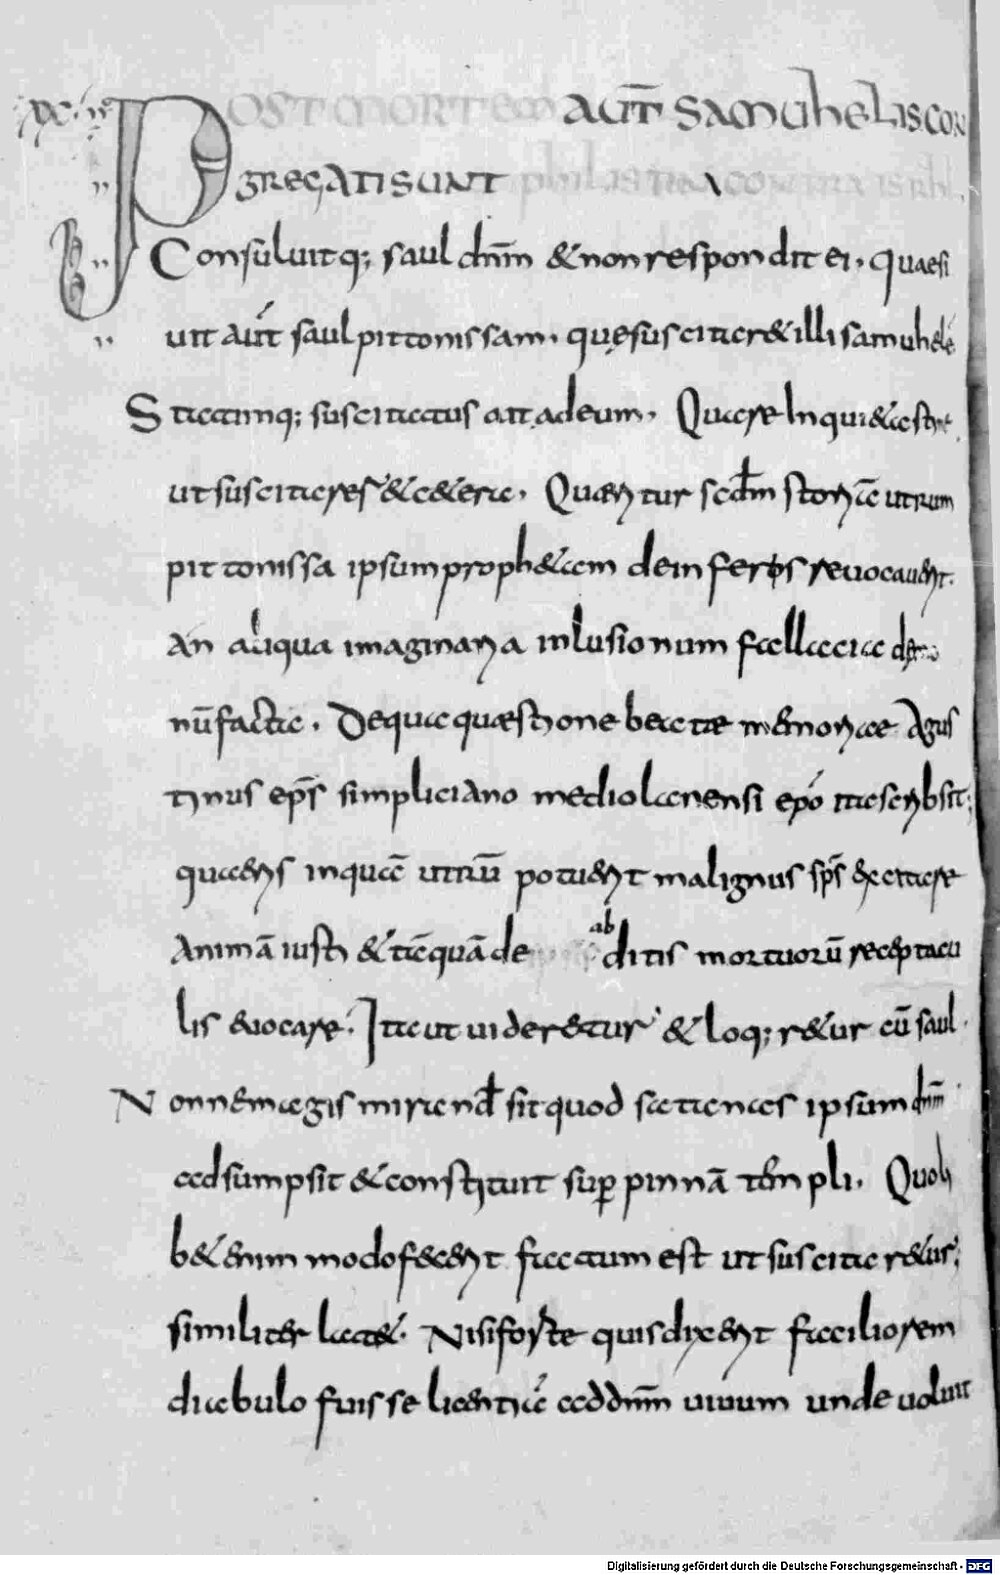 POST MORTEM AUT̄ SAMUHELIS CON
GREGATI SUNT philistea contra isrl̄
Consuluitq; saul dn̄m & non respondit ei. quaesi
uit aut̄ saul pittonissam. quę suscitar& illi samuhele
Statimq; suscitatus ait ad eum. Quare Inqui&asti me
ut suscitares & c&era. Quaeritur scdm storiā utrum
pittonissa ipsum proph&am de inferos reuocauerit.
An aliqua imaginaria inlusionum fallacia demo
nū facta. De qua quaestione beatae memoriae Agus
tinus ep̄s simpliciano mediolanensi epō ita scribsit;
quaeris inquā utrū potuerit malignus sp̄s excitare
Animā iusti & tāquā de abditis mortuorū receptacu
lis euocare. Ita ut uider&ur & loq;r&ur cū saul.
Nonne magis mirand̄ sit quod satanas ipsum dn̄m
adsumpsit & constituit sup pinnā templi. Quoli
b& enim modo fecerit factum est ut suscitar&ur;
similiter lat&. Nisi forte quis dixerit faciliorem
diabulo fuisse licentiā ad dn̄m uiuum unde uoluit
Digitalisierung gefördert durch die Deutsche Forschungsgemeinschaft - DFG